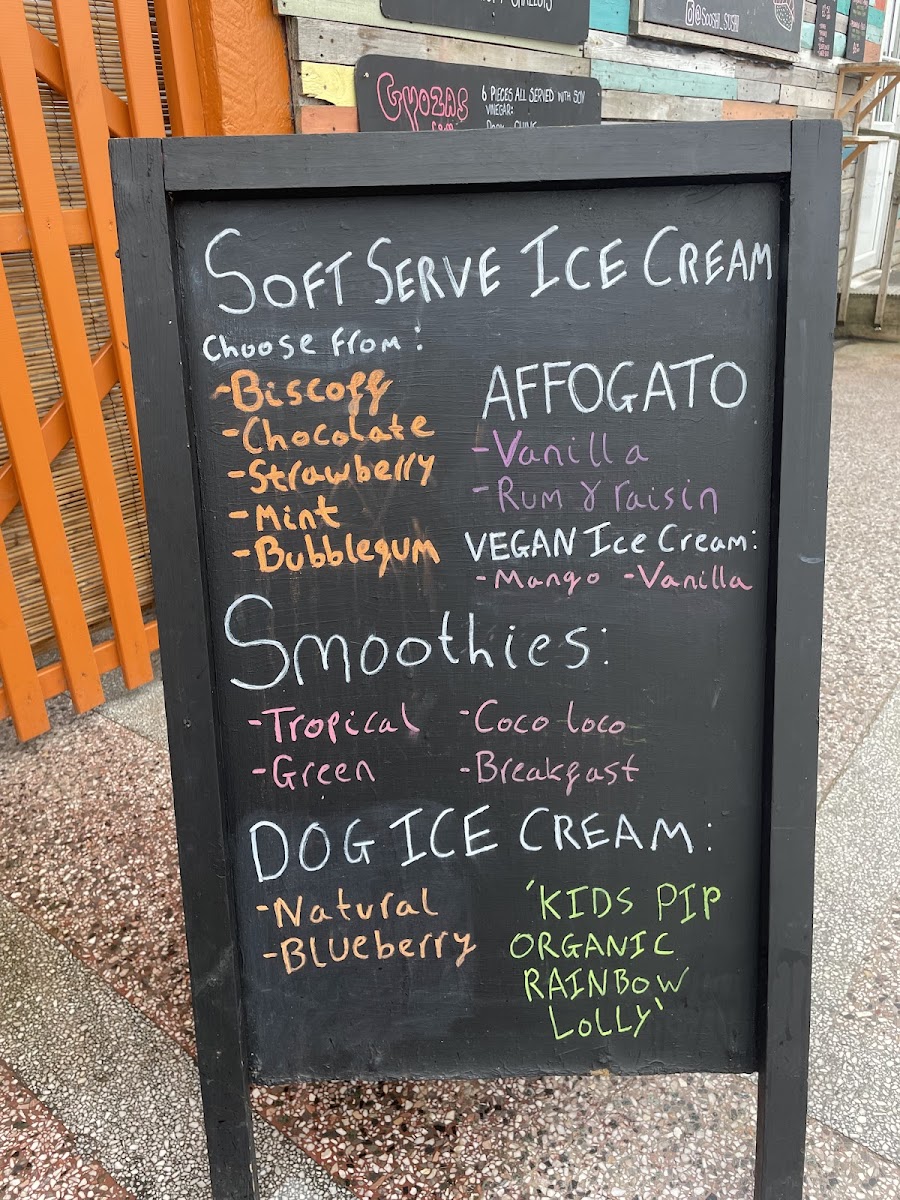 @SOOSHI_SUSHI
GYOZAS
6 PIECES ALL SERVED WITH SOY
VINEGAR:
SOFT SERVE ICE CREAM
Choose from:
-Biscoff
-Chocolate
-Strawberry
-Mint
-Bubblegum
AFFOGATO
-Vanilla
-Rum & raisin
VEGAN Ice Cream:
-Mango -Vanilla
Smoothies:
-Tropical
-Green
-Coco loco
-Breakfast
DOG ICE CREAM:
-Natural
-Blueberry
'KIDS PIP
ORGANIC
RAINBOW
LOLLY'